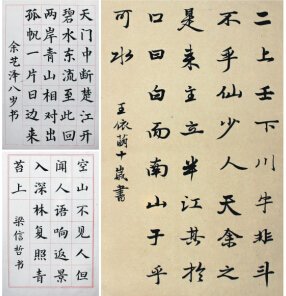 天门中断楚江开
碧水东流至此回
两岸青山相对出
孤帆一片日边来
余艺泽八岁书
空山不见人但
闻人语响返景
入深林复照青
苔上
梁信哲书
二上壬下川牛非斗
不乎仙少人天余之
是来主立半江其於
口曰白而南山于乎
可水
王依萌十歲書